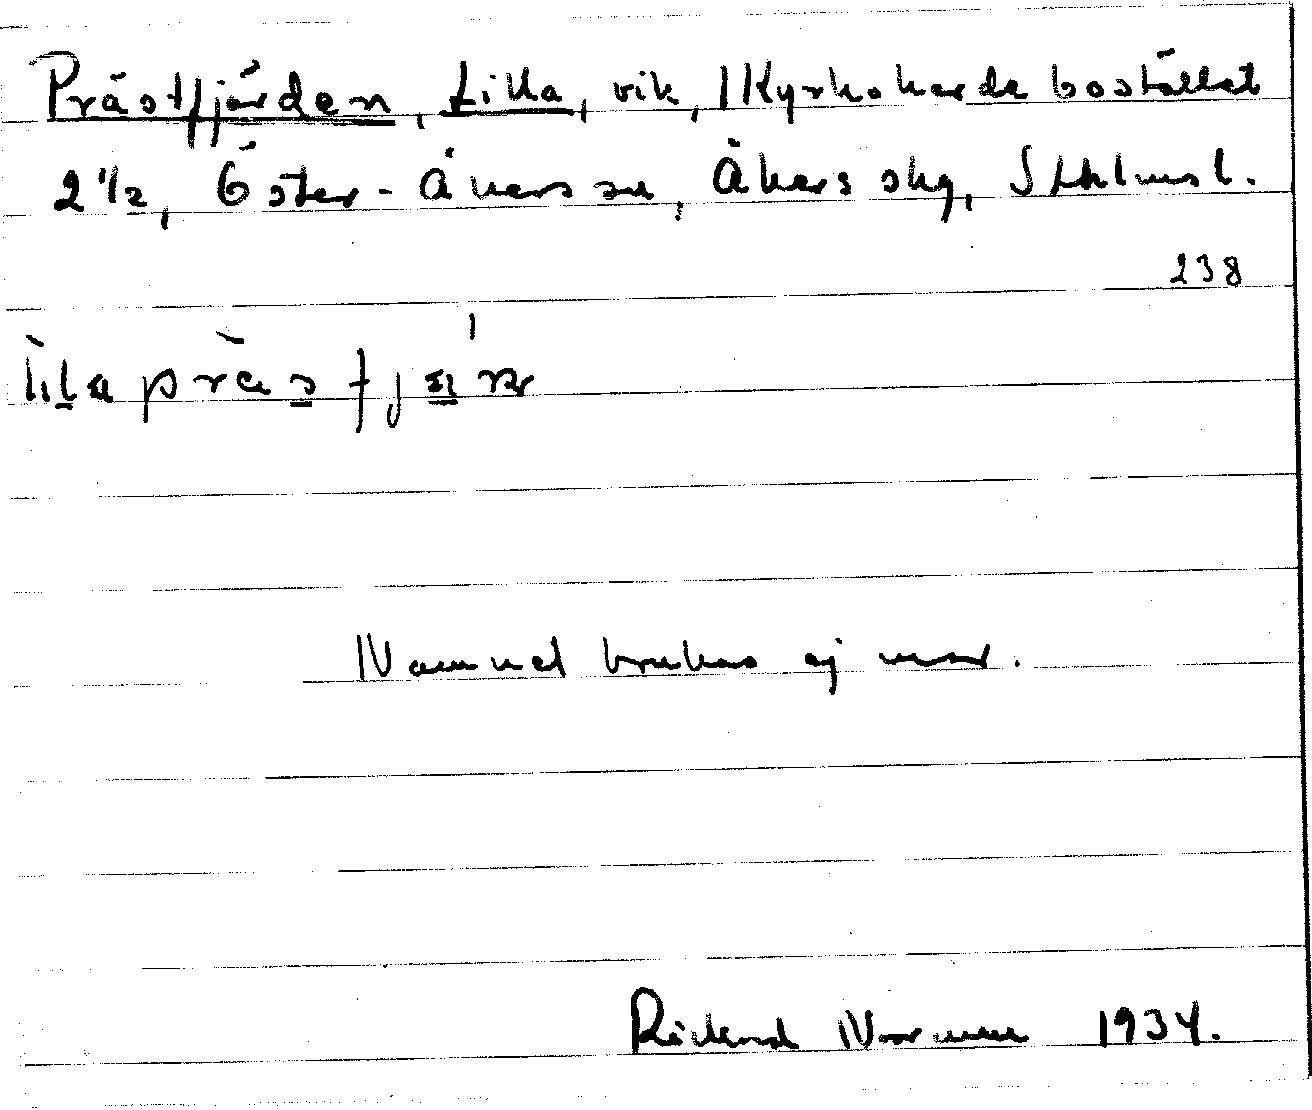 Prästfjärden, Lilla, vik, 1 Kyrkoherdebostället
2 1/2, Öster-Åkers sn, Åkers skg, Sthlms l.
238
lìla præ̀stfjæ̀r
Namnet brukas ej mer.
Rickard Norman 1934.